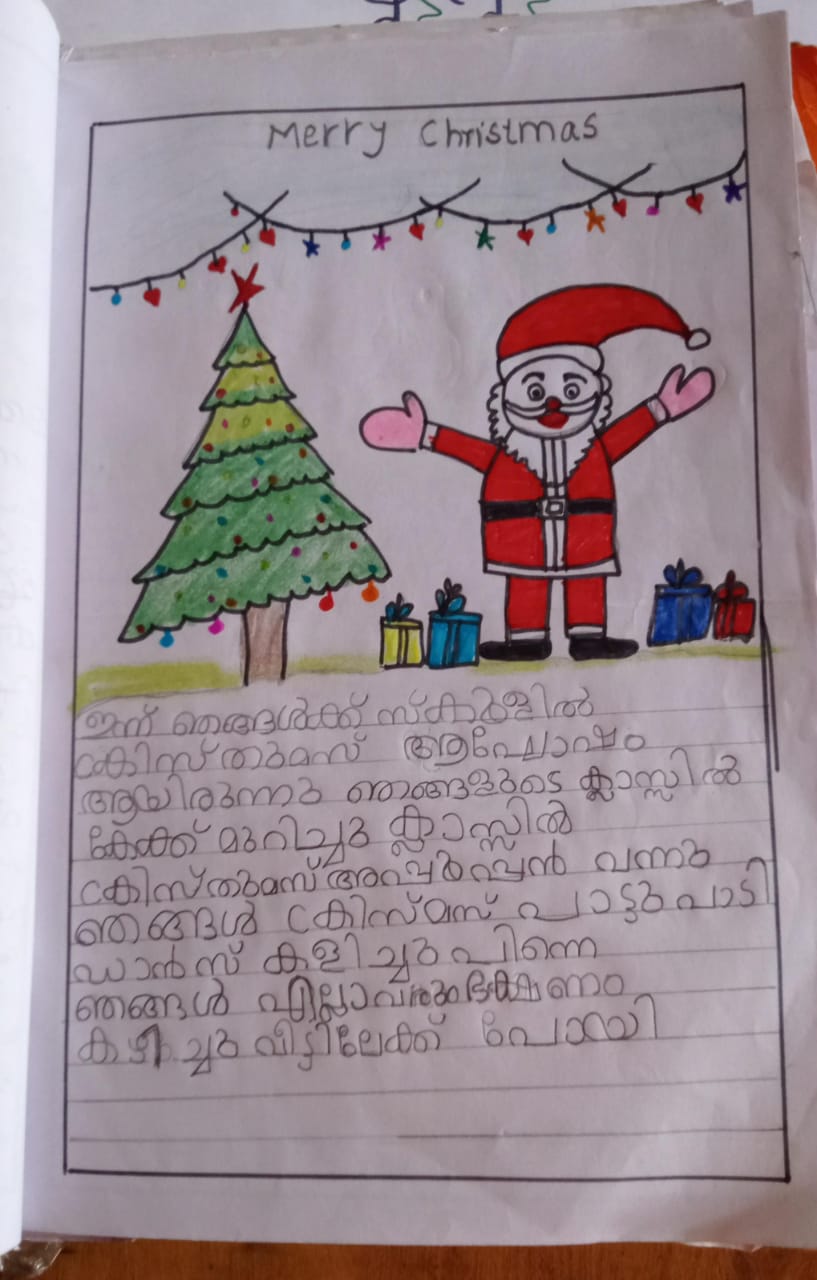 Merry Christmas
ഇന്ന് ഞങ്ങൾക്ക് സ്കൂളിൽ
ക്രിസ്തുമസ് ആഘോഷം
ആയിരുന്നു ഞങ്ങളുടെ ക്ലാസ്സിൽ
കേക്ക് മുറിച്ചു ക്ലാസ്സിൽ
ക്രിസ്തുമസ് അപ്പൂപ്പൻ വന്നു
ഞങ്ങൾ ക്രിസ്മസ് പാട്ടു പാടി
ഡാൻസ് കളിച്ചു പിന്നെ
ഞങ്ങൾ എല്ലാവരും ഭക്ഷണം
കഴിച്ചു വീട്ടിലേക്ക് പോയി